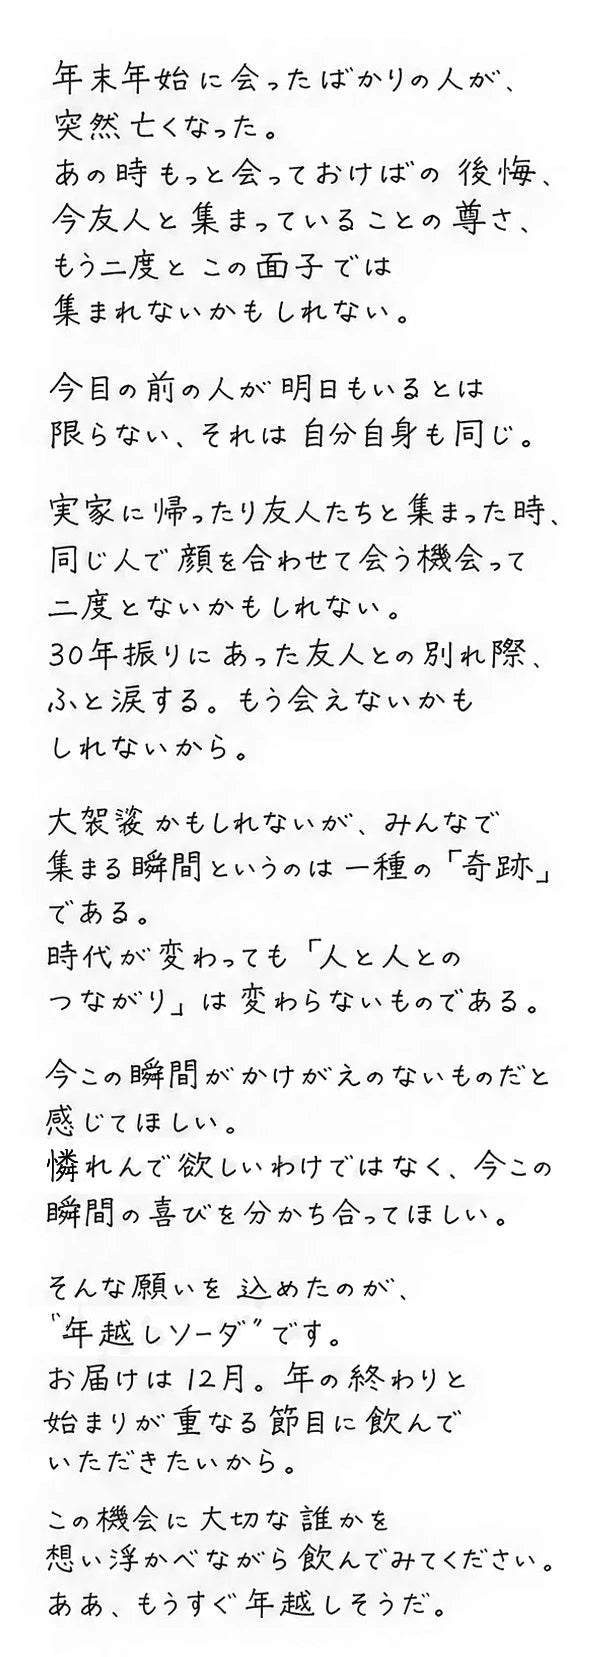 年末年始に会ったばかりの人が、
突然亡くなった。
あの時もっと会っておけばの後悔、
今友人と集まっていることの尊さ、
もう二度とこの面子では
集まれないかもしれない。
今目の前の人が明日もいるとは
限らない、それは自分自身も同じ。
実家に帰ったり友人たちと集まった時、
同じ人で顔を合わせて会う機会って
二度とないかもしれない。
30年振りにあった友人との別れ際、
ふと涙する。もう会えないかも
しれないから。
大袈裟かもしれないが、みんなで
集まる瞬間というのは一種の「奇跡」
である。
時代が変わっても「人と人との
つながり」は変わらないものである。
今この瞬間がかけがえのないものだと
感じてほしい。
憐れんで欲しいわけではなく、今この
瞬間の喜びを分かち合ってほしい。
そんな願いを込めたのが、
"年越しソーダ"です。
お届けは12月。年の終わりと
始まりが重なる節目に飲んで
いただきたいから。
この機会に大切な誰かを
想い浮かべながら飲んでみてください。
ああ、もうすぐ年越しそうだ。